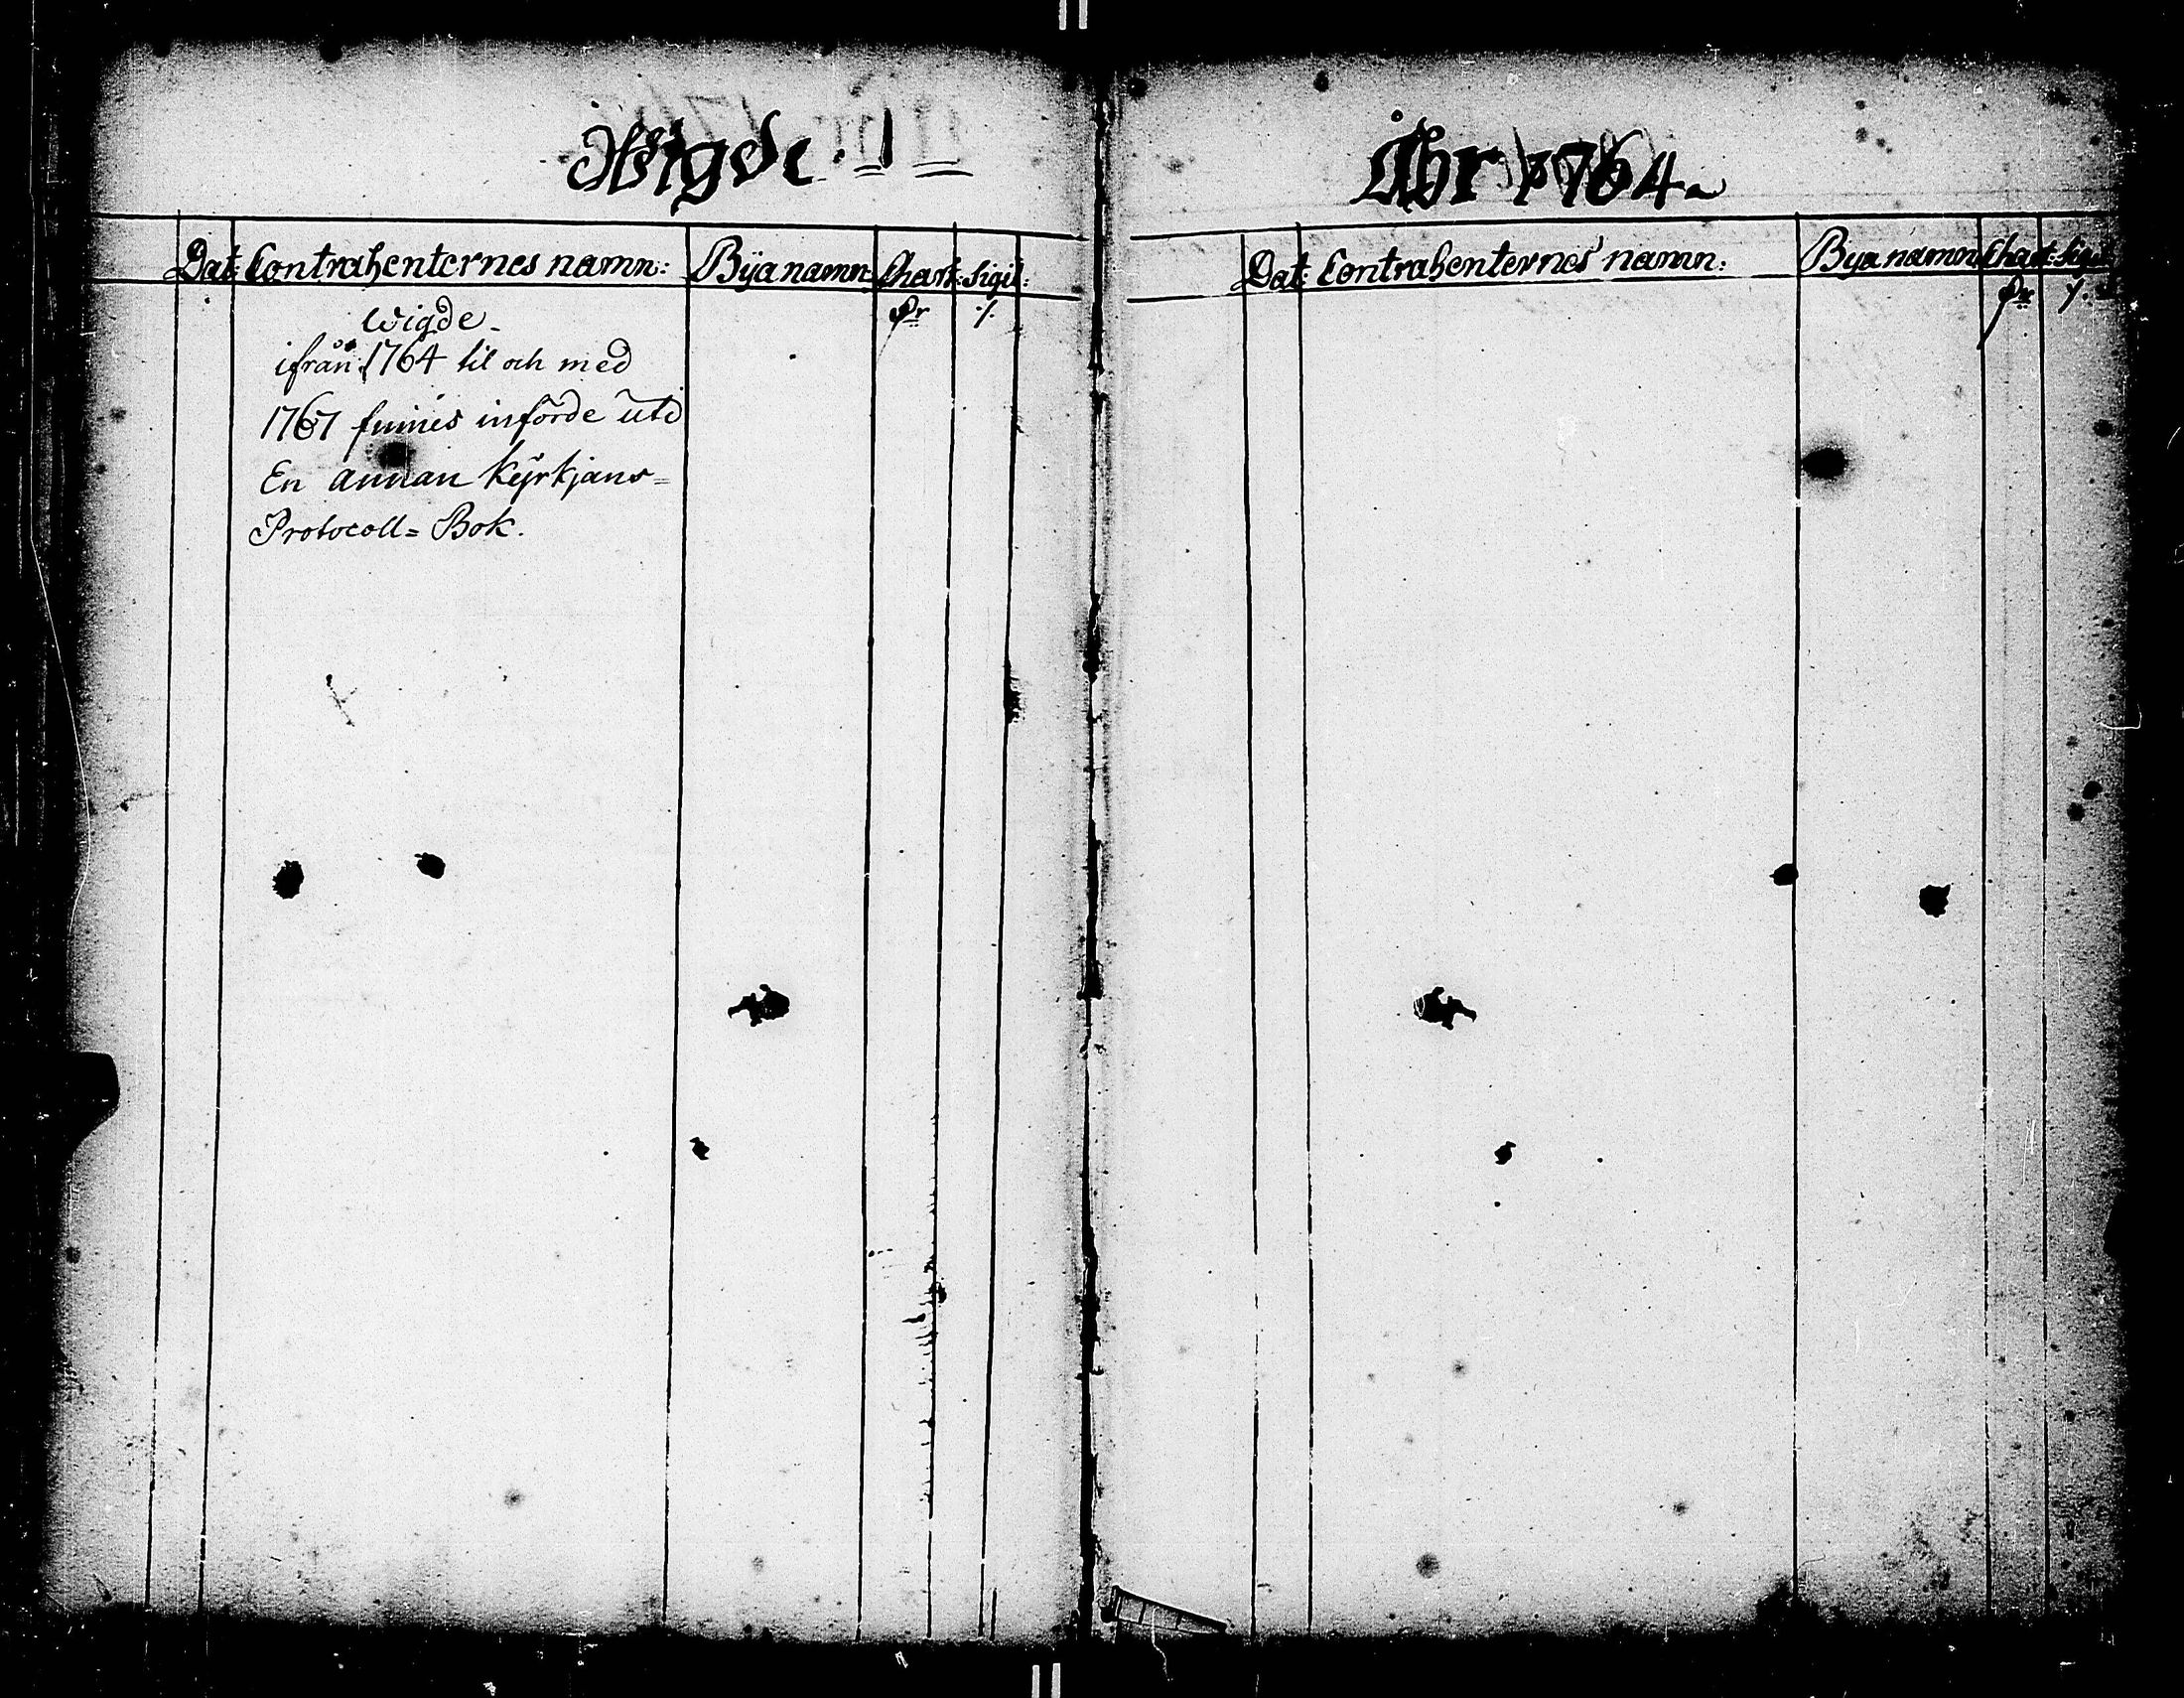 Wigde.
Dat: Contrahenternes namn: Bÿa namn Chart: Sigil:
Wigde.
ifrån 1764 til och med
1767 finnes införde uti
En annan Kÿrkjans=
Protocoll= Bok.
Åhr 1764.
Dat: Contrahenternes namn: Bya namn Chart: Sigil: